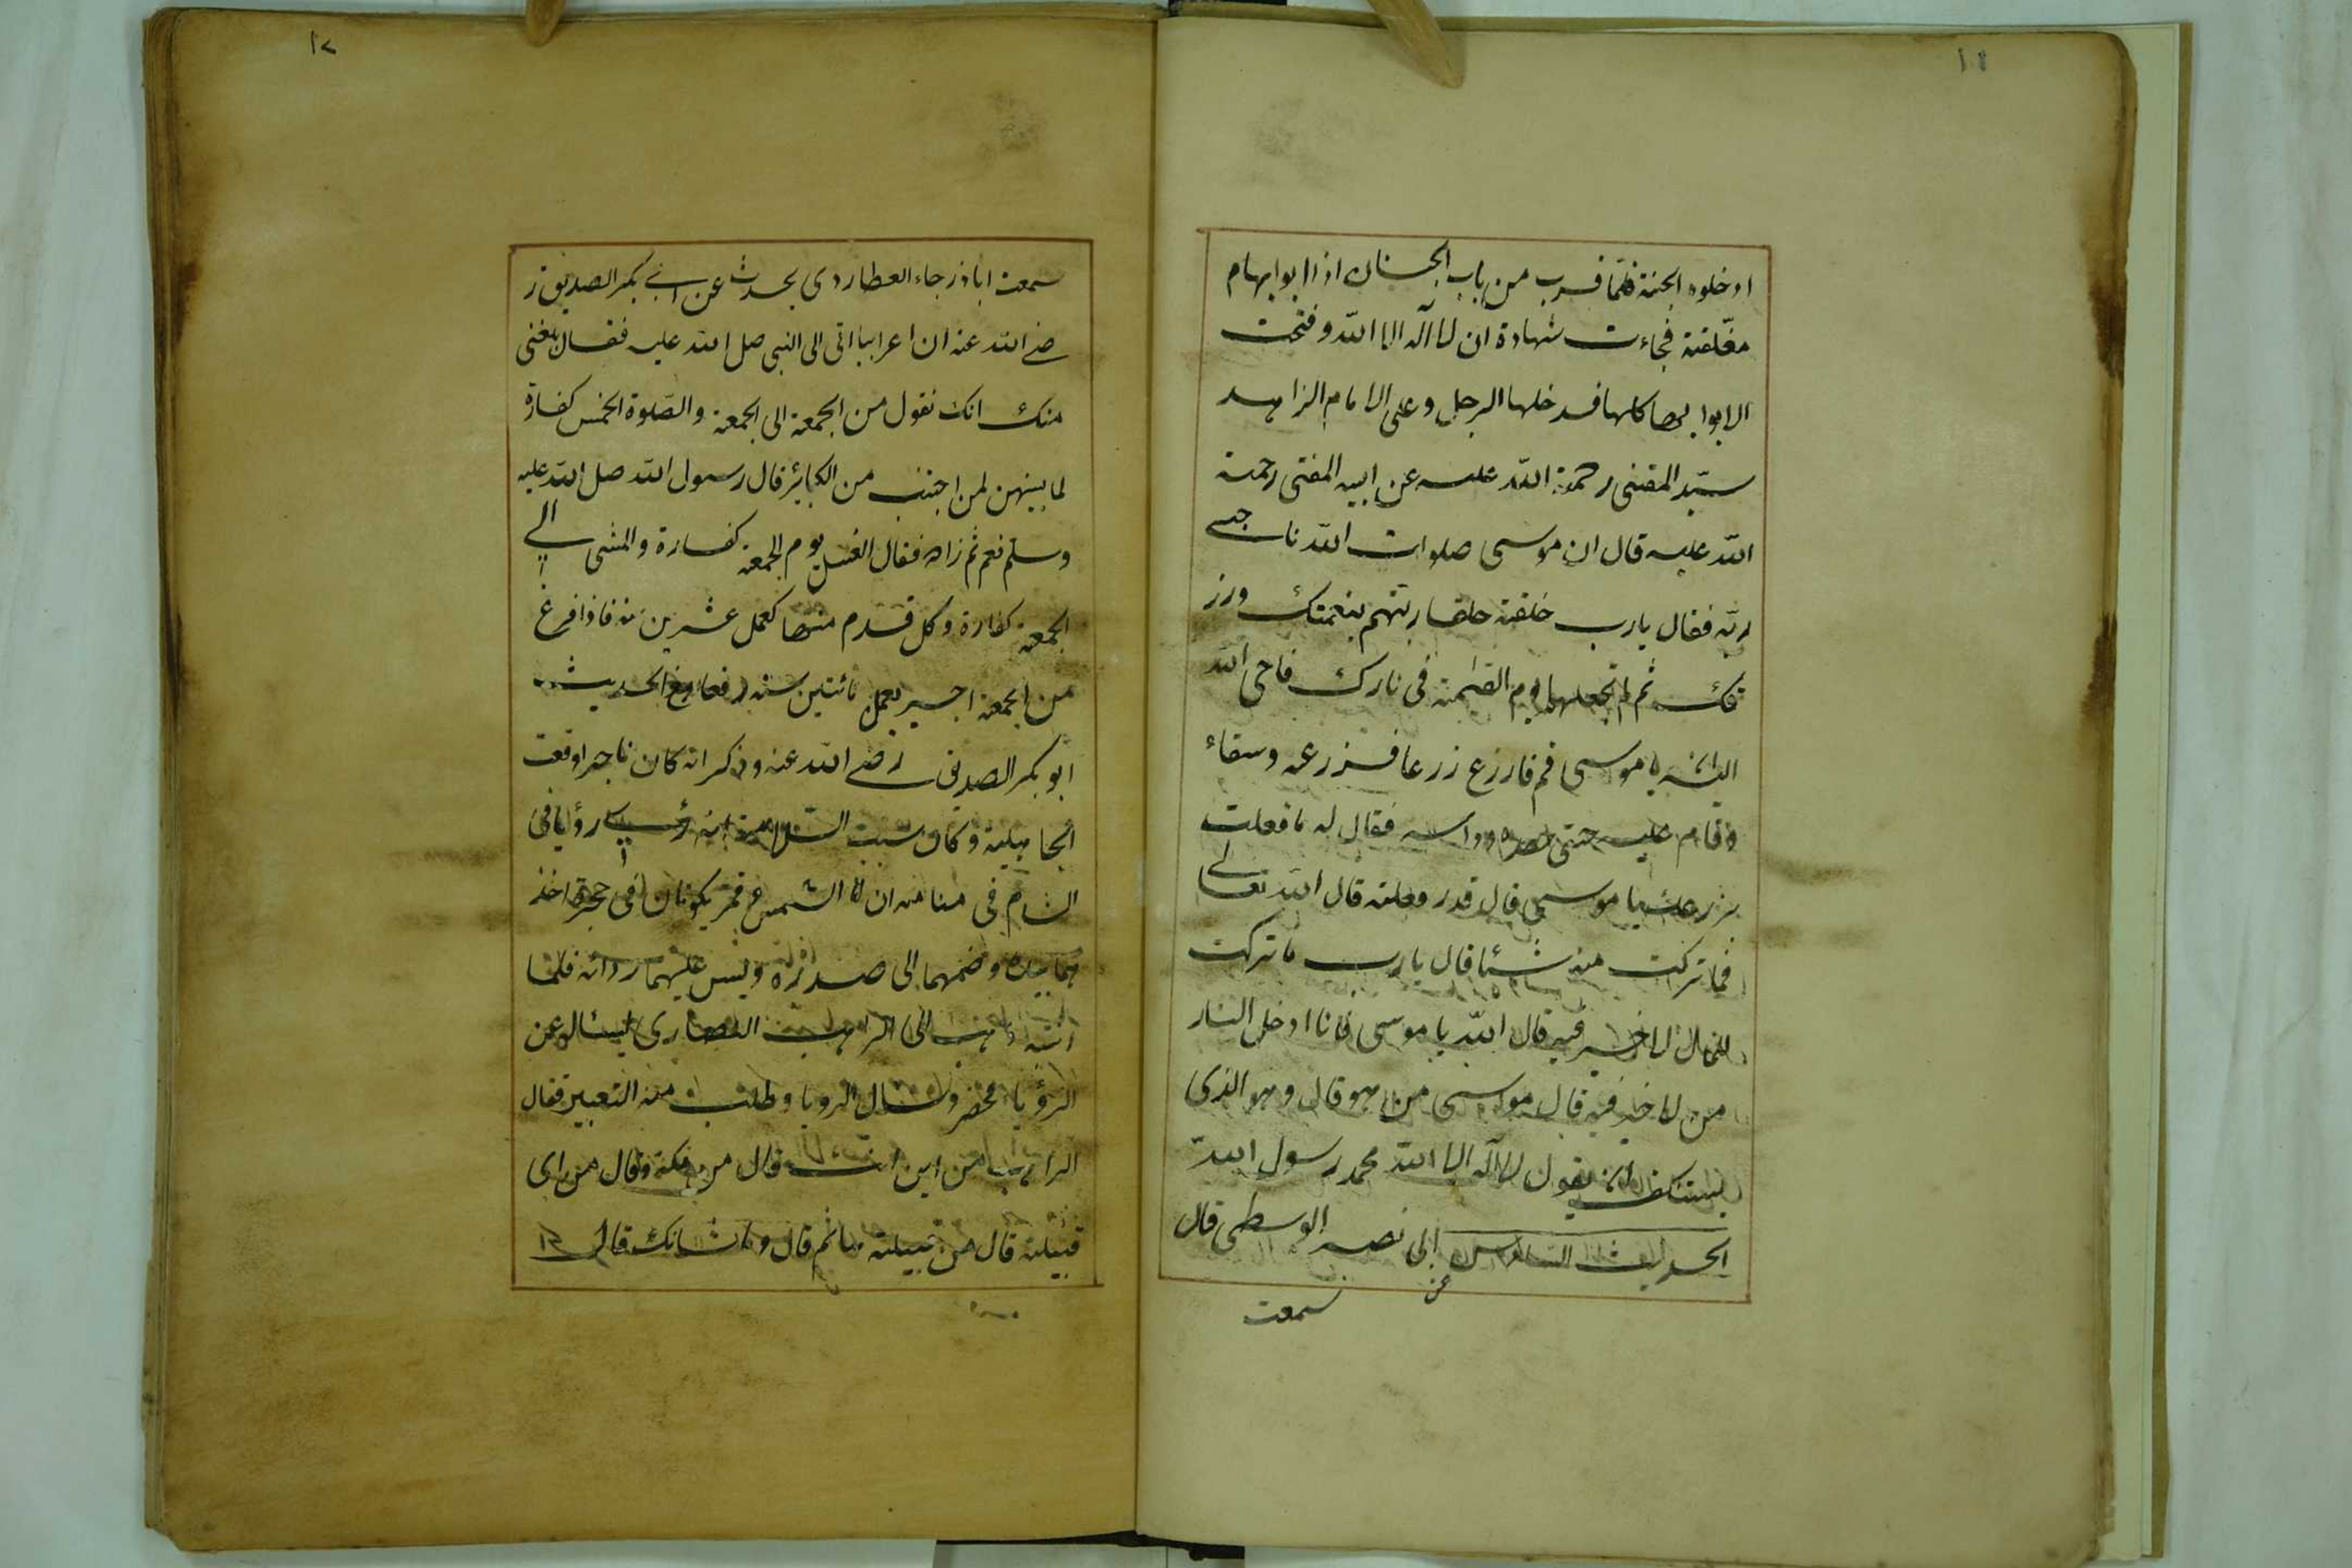 ١١
ادخلوه الجنة فلما قرب من باب الجنان اذا ابوابهام
مغلقة فجاءت شهادة ان لا اله الا الله وفتحت
الابوابها كلها فدخلها الرجل وعلى الامام الزاهد
سيد المفتى رحمة الله عليه عن ابيه المفتى رحمة
الله عليه قال ان موسى صلوات الله ناجى
ربه فقال يارب خلقته خلقا ربتهم بنعمتك ورز
قك ثم تجعلهم يوم القيمة فى نارك فاحى الله
اليه يا موسى قم فازرع زرعا فزرعه وسقاء
وقام عليه حتى حصده وداسه فقال له ما فعلت
بزرعك يا موسى قال قد رفعته قال الله تعالى
فما تركت منه شيئا قال يارب ما تركت
الا ما لا خير فيه قال الله يا موسى فانا ادخل النار
من لا خير فيه قال موسى من هو قال وهو الذى
يستنكف ان يقول لا اله الا الله محمد رسول الله
الحديث السادس عن ابى نصير الوسطى قال
سمعت
١٢
سمعت اباذر جاء العطاردى يحدث عن ابى بكر الصديق ر
ضى الله عنه ان اعرابيا اتى الى النبى صل الله عليه فقال بلغنى
منك انك تقول من الجمعة الى الجمعة والصلوة الخمس كفارة
لما بينهن لمن اجتنب من الكبائر قال رسول الله صل الله عليه
وسلم نعم ثم زاده فقال الغسل يوم الجمعة كفارة والمشى الى
الجمعة كفارة وكل قدم منها كعمل عشرين سنة فاذا فرغ
من الجمعة اجير بعمل مائتين سنة رفعا وفى الحديث
ابو بكر الصديق رضى الله عنه وذكر انه كان تاجرا وقعت
الجاهلية وكان سبب اسلامه انه رؤيا فى
الشام فى منامه ان الشمس وقمر يكونان فى حجره اخذ
هما بيده وضمهما الى صدره ولبس عليهما ردائه فلما
انتبه ذهب الى الراهب النصارى ليسئاله عن
الرؤيا فحضر وسال الرويا وطلب منه التعبير فقال
الراهب من اين انت قال من مكة وقال من اى
قبيلة قال من قبيلة هاشم قال وما شانك قال